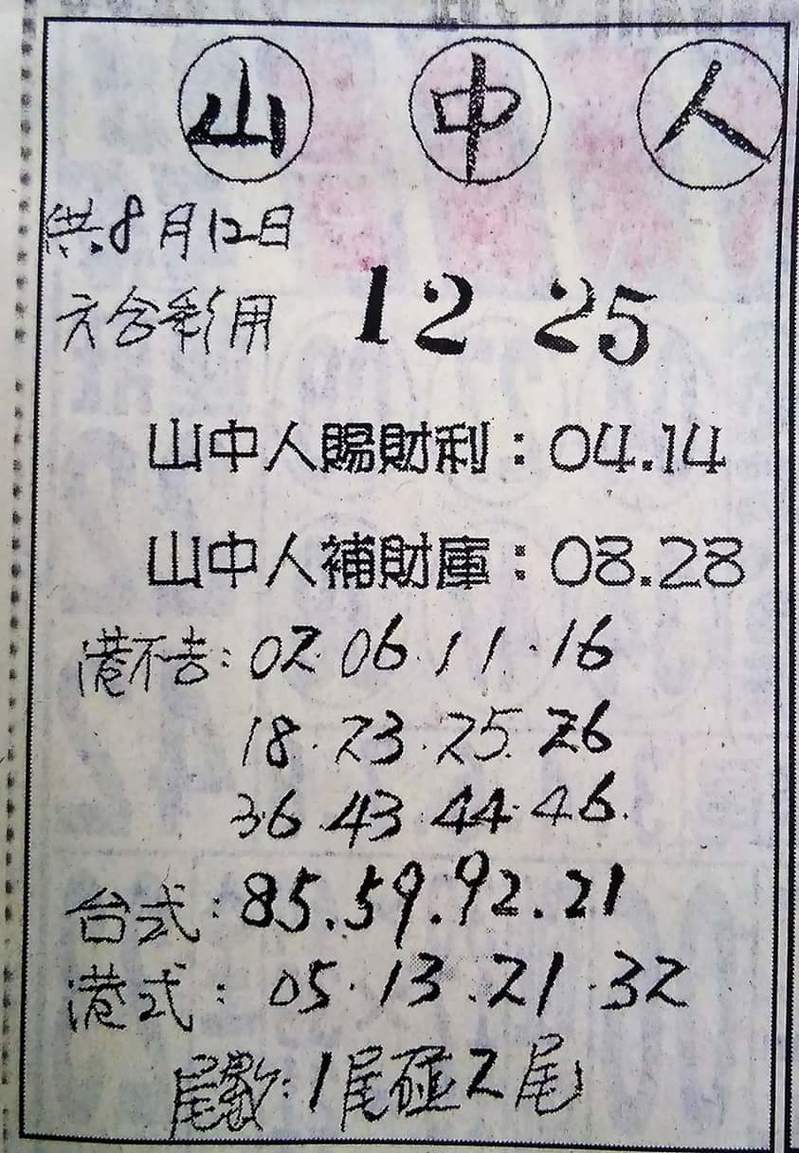 山 中 人
供8月12日
六合彩用 12 25
山中人賜財利：04.14
山中人補財庫：08.28
港不吉：02.06.11.16
18.23.25.26
36.43.44.46.
台式：85.59.92.21
港式：05.13.21.32
尾數：1尾碰2尾